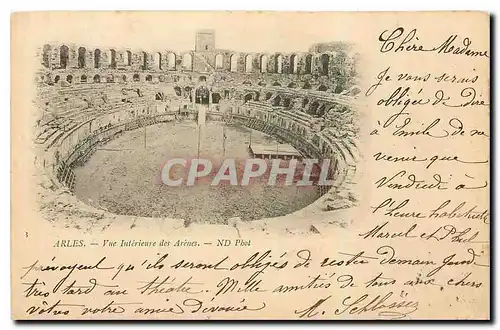 Chère Madame
Je vous serais
obligée de dire
à Emile de ne
venir que
Vendredi à
l'heure habituelle
Marcel et Phil
CPARAMA
ARLES. — Vue Intérieure des Arènes. — ND Phot
prévoyent qu'ils seront obligés de rester demain jeudi
très tard au théatre. Mille amitiés de tous aux chers
vôtres votre amie dévouée M. Schlösser